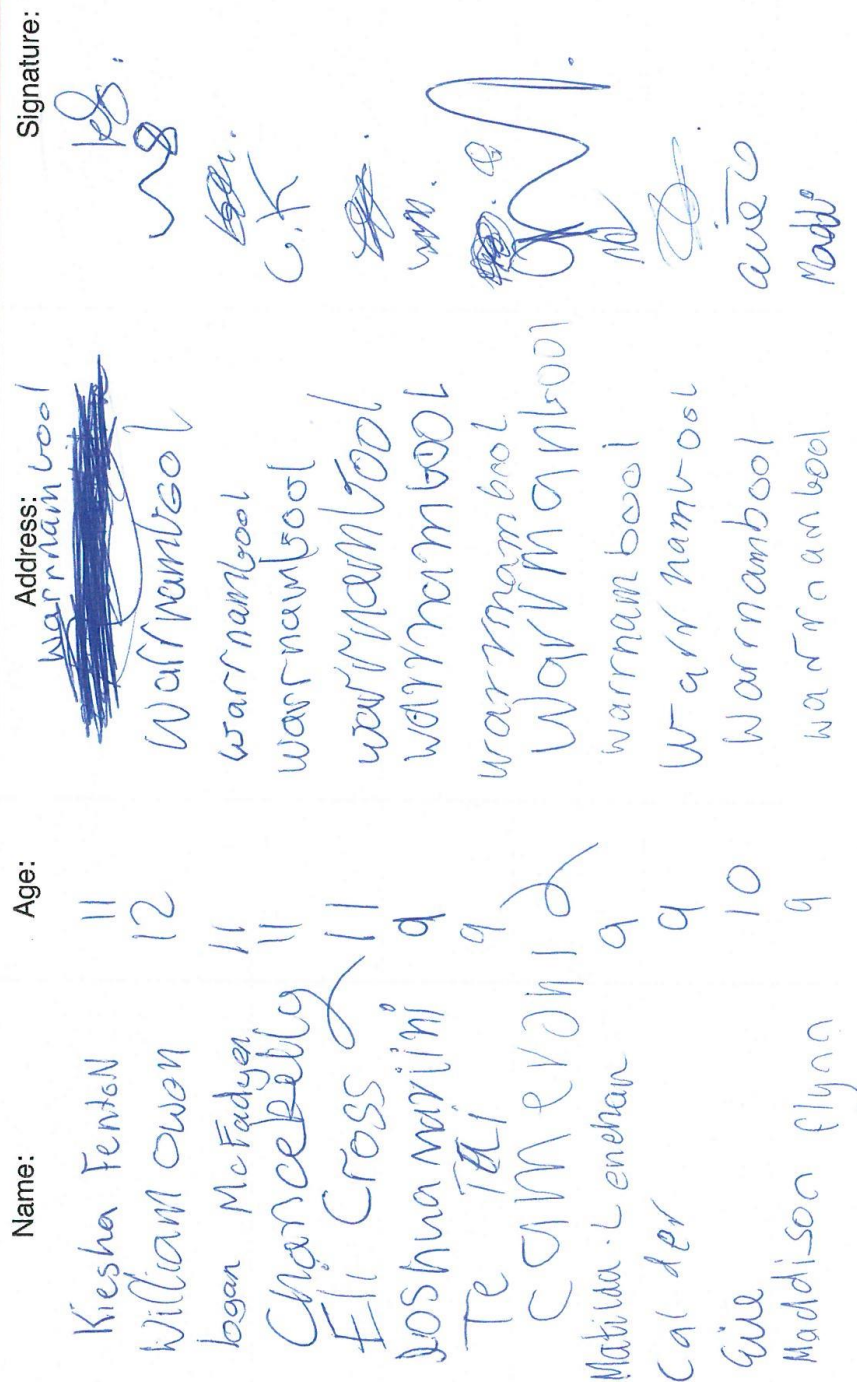 Name: Age: Address: Signature:
Kiesha Fenton 11 Warrnambool
William Owen 12 Warrnambool
logan McFadyen 11 warrnambool
Chance Kelly 11 warrnambool C.K
Eli Cross 11 warrnambool
Joshua 9 warrnambool
Te Tai 9 warrnambool
Cameron 12 Warrnambool
Matilda Lenehan 9 warrnambool
Calder 9 Warrnambool
10 Warrnambool
Maddison flynn 9 warrnambool Maddi